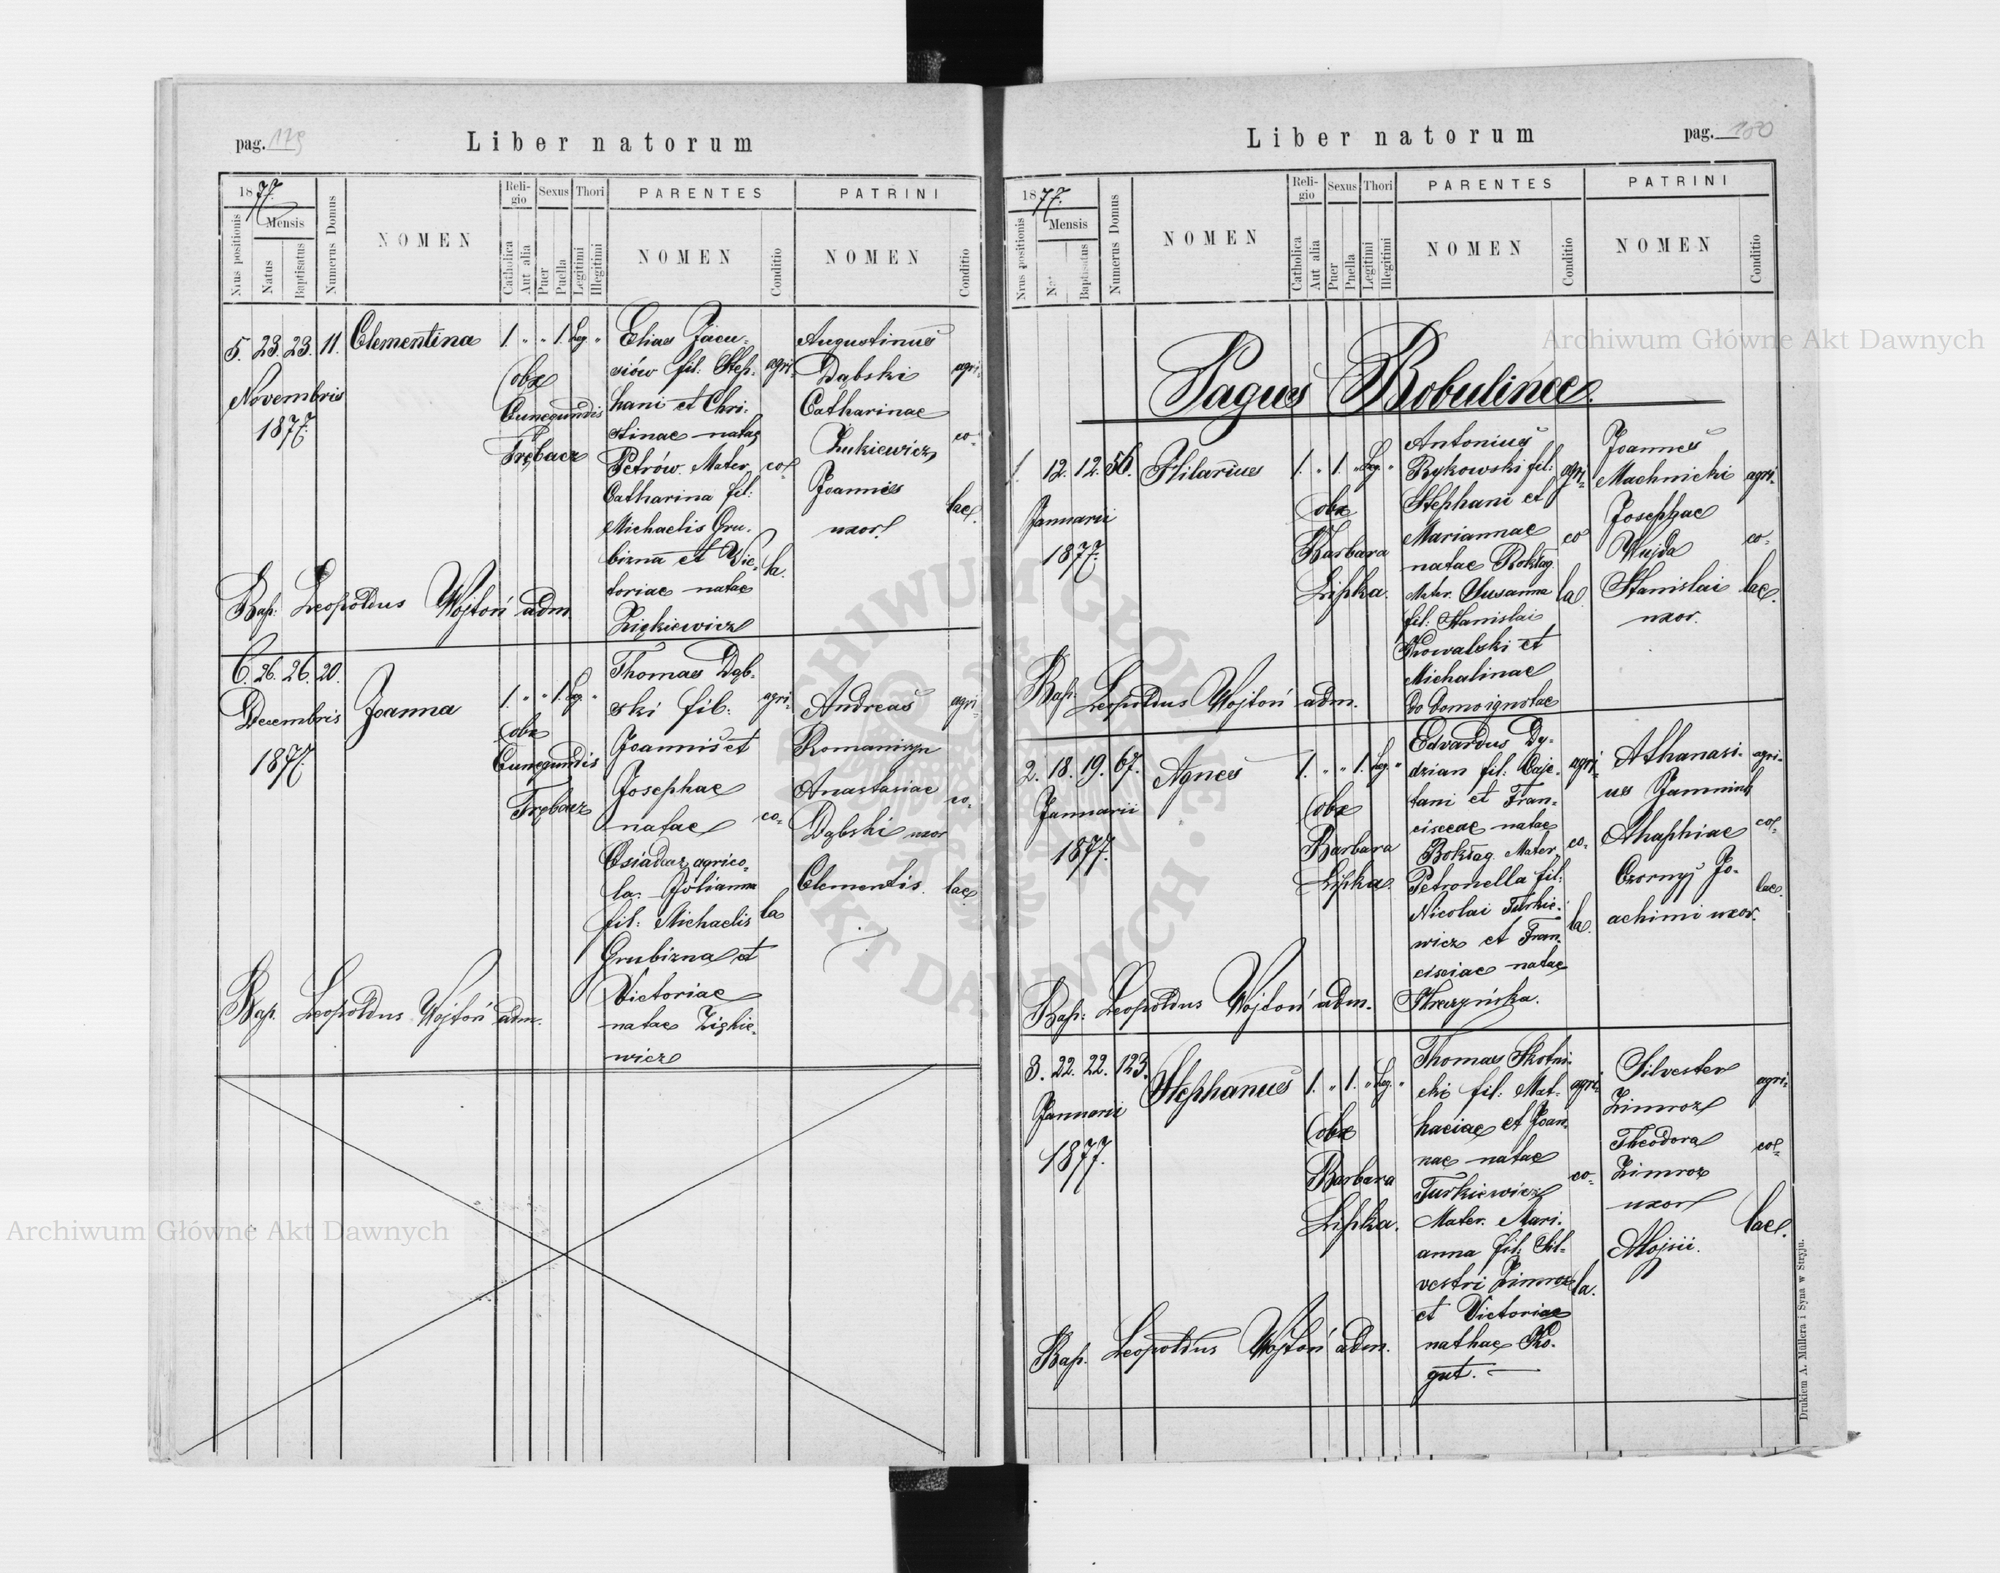 pag. 179
Liber natorum
1877.
Mensis
Nrus positionis
Natus
Baptisatus
Numerus Domus
NOMEN
Religio
Catholica
Aut alia
Sexus
Puer
Puella
Thori
Legitimi
Illegitimi
PARENTES
NOMEN
Conditio
PATRINI
NOMEN
Conditio
5. 23. 23. 11. Clementina 1. " " 1. Leg. "
Novembris
1877.
Cunegundis
Trębacz
Elias Jacu-
viów fil: Step-
hani et Chri-
stinae natae
Petrów. Mater
Catharina fil:
Michaelis Gru-
bizna et Vic-
toriae natae
Ziękiewicz
agri-
co-
la.
Augustinus
Dąbski
Catharinae
Żukiewicz
Joannis
uxor
agri-
co-
lae.
Bap: Leopoldus Wojtoń adm.
6. 26. 26. 20. Joanna 1. " " 1. Leg. "
Decembris
1877.
Cunegundis
Trębacz
Thomas Dąb-
ski fil:
Joannis et
Josephae
natae
Osiadacz agrico-
la. Julianna
fil: Michaelis
Grubizna et
Victoriae
natae Ziękie-
wicz
agri-
co-
la
Andreas
Romaniszyn
Anastasiae
Dąbski uxor
Clementis.
agri-
co-
lae
Bap. Leopoldus Wojtoń adm.
Liber natorum
pag. 180
1877.
Mensis
Nrus positionis
Nat
Baptisatus
Numerus Domus
NOMEN
Religio
Catholica
Aut alia
Sexus
Puer
Puella
Thori
Legitimi
Illegitimi
PARENTES
NOMEN
Conditio
PATRINI
NOMEN
Conditio
Pagus Bobulince.
1. 12. 12. 56. Hilarius 1. " 1. " Leg. "
Januarii
1877.
Barbara
Lipka.
Antonius
Bykowski fil:
Stephani et
Mariannae
natae Boktag
Mater. Susanna
fil: Stanislai
Kowalski et
Michalinae
do Domo ignotae
agri-
co
la
Joannes
Machnicki
Josephae
Wujda
Stanislai
uxor.
agri-
co-
lae.
Bap: Leopoldus Wojtoń adm.
2. 18. 19. 67. Agnes 1. " " 1. Leg. "
Januarii
1877.
Barbara
Lipka.
Edvardus Dy-
dzian fil: Caje-
tani et Fran-
ciscae natae
Boktag. Mater
Petronella fil:
Nicolai Turkie-
wicz et Fran-
cisciae natae
agri-
co-
la.
Athanasi-
us Jaminik
Ahaphiae
Czornyj Jo-
achimi uxor.
agri-
co-
lae.
Bap: Leopoldus Wojtoń adm.
3. 22. 22. 123. Stephanus 1. " 1. " Leg. "
Januarii
1877.
Barbara
Lipka.
Thomas Skotni-
cki fil: Mat-
haeiae et Joan-
nae natae
Turkiewicz
Mater. Mari-
anna fil: Sil-
vestri Zimroz
et Victoriae
nathae Ko-
gut. —
agri-
co-
la.
Silvester
Zimroz
Theodora
Zimroz
uxor
Alojsii.
agri-
co-
lae.
Bap. Leopoldus Wojtoń adm.
Drukiem A. Müllera i Syna w Stryju.
Archiwum Główne Akt Dawnych
Archiwum Główne Akt Dawnych
ARCHIWUM GŁÓWNE AKT DAWNYCH